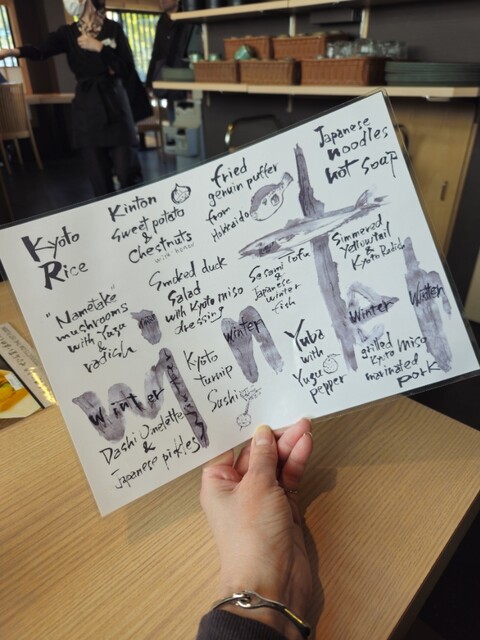 Kyoto
Rice
Kinton
Sweet potato
&
Chestnuts
fried
genuin puffer
from
Hokkaido
Japanese
noodles
hot soap
"Nametake"
mushrooms
with Yuzu
&
radish
Smoked duck
Salad
with Kyoto miso
dressing
Sesami tofu
&
Japanese
winter
fish
Simmered
Yellowtail
&
Kyoto Radish
Winter
Dashi Omelette
&
Japanese pickles
Kyoto
turnip
Sushi
Winter
Yuba
with
Yuzu
pepper
Winter
grilled
Kyoto Miso
marinated
pork
Winter